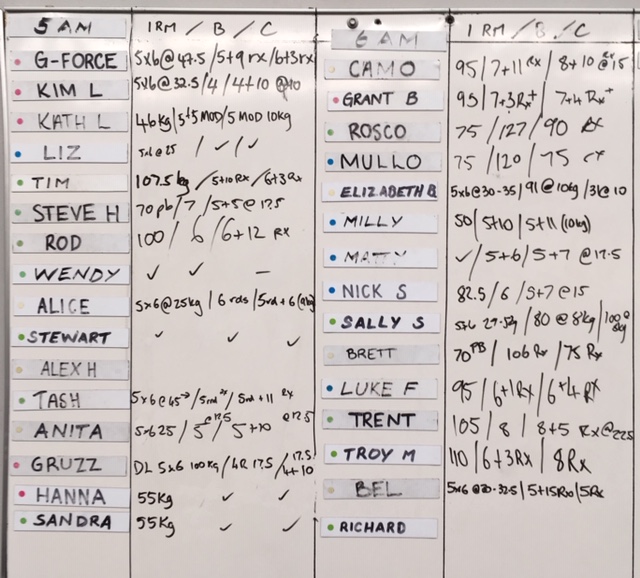 5 AM 1RM / B / C
G-FORCE 5x6@47.5 / 5+9 rx / 6+3 rx
KIM L 5x6@32.5 / 4 / 4+10 @10
KATH L 46kg / 5+5 MOD / 5 MOD 10kg
LIZ 5x6@25 / ✓ / ✓
TIM 107.5kg / 5+10 Rx / 6+3 Rx
STEVE H 70 pb / 7 / 5+5 @ 17.5
ROD 100 / 6 / 6+12 RX
WENDY ✓ ✓ —
ALICE 5x6@25kg / 6 rds / 5rd+6
STEWART ✓ ✓
ALEX H
TASH 5x6@45 / 5rnd rx / 5rnd+11 rx
ANITA 5x6 25 / 5 @12.5 / 5+10 @12.5
GRUZZ DL 5x6 100kg / 4R 17.5 / 4+10 17.5
HANNA 55kg ✓ ✓
SANDRA 55kg ✓ ✓
6 AM 1 RM / B / C
CAMO 95 / 7+11 Rx / 8+10 Rx @15
GRANT B 95 / 7+3 Rx+ / 7+4 Rx+
ROSCO 75 / 127 / 90 Rx
MULLO 75 / 120 / 75 rx
ELIZABETH B 5x6@30-35 / 91@10kg / 31@10
MILLY 50 / 5+10 / 5+11 (10kg)
MATTY ✓ / 5+6 / 5+7 @17.5
NICK S 82.5 / 6 / 5+7 @15
SALLY S 5x6 27.5kg / 80 @ 8kg / 100 @ 8kg
BRETT 70 PB / 106 Rx / 75 Rx
LUKE F 95 / 6+1 Rx / 6+4 RX
TRENT 105 / 8 / 8+5 Rx@22.5
TROY M 110 / 6+3 Rx / 8 Rx
BEL 5x6@30-32.5 / 5+15 Rx / 5Rx
RICHARD